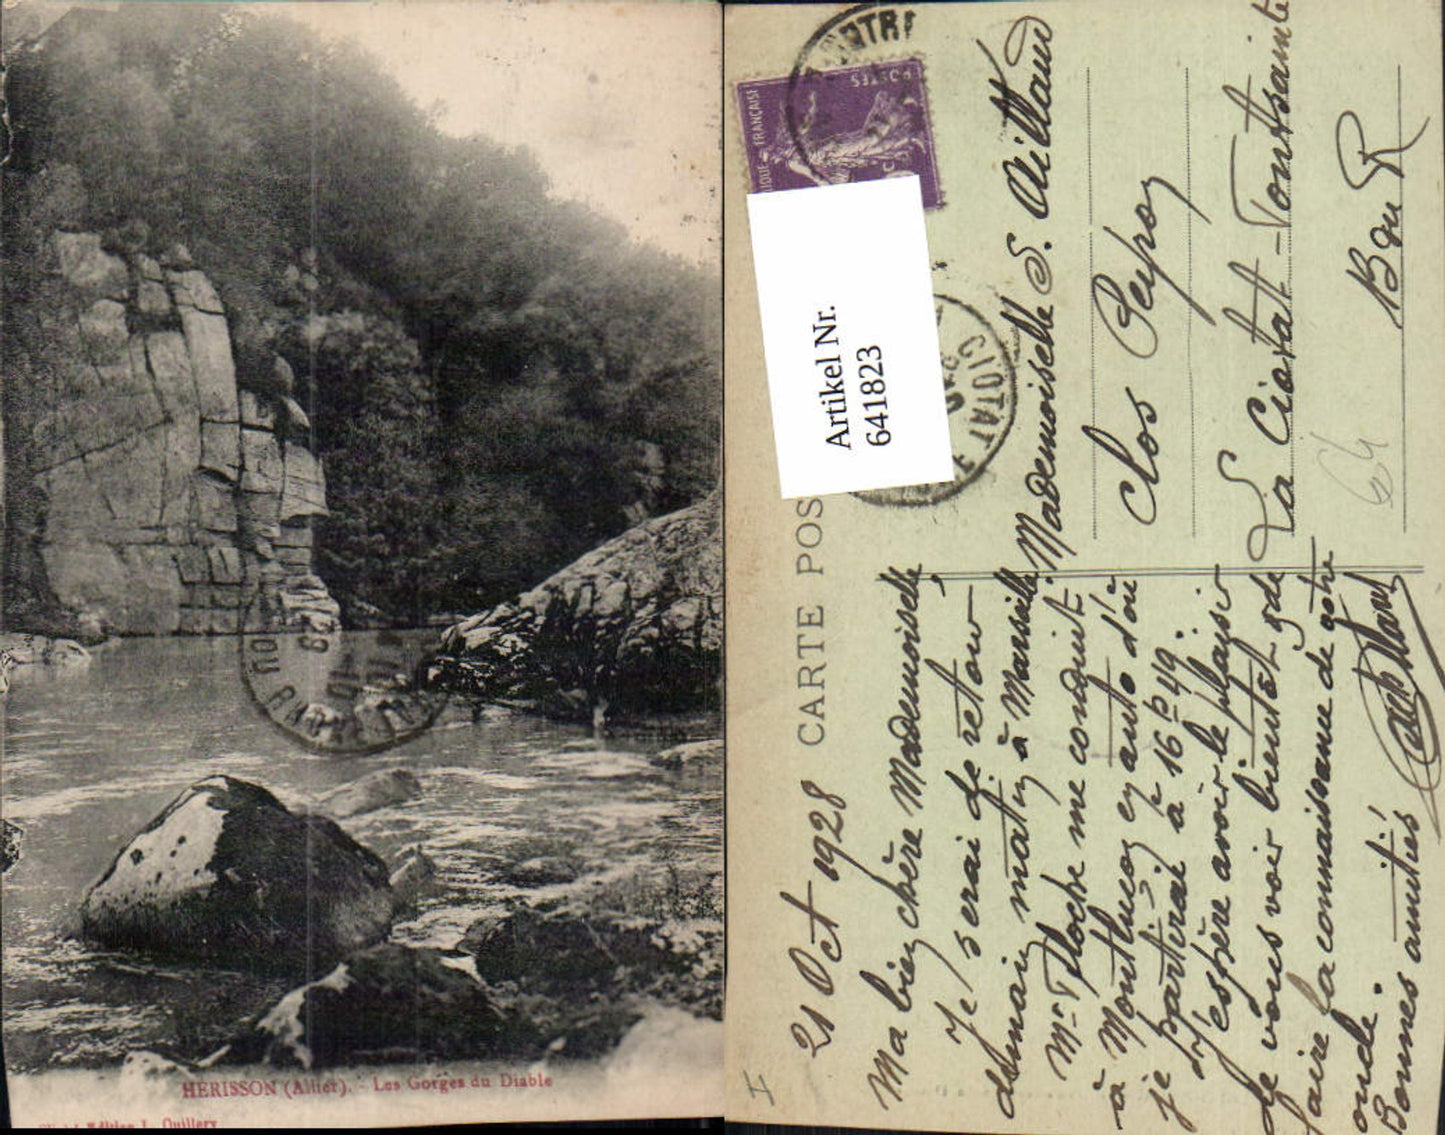 HERISSON (Allier). - Les Gorges du Diable
Edition L. Quillery
POSTES
FRANÇAISE
Artikel Nr.
641823
CIOTAT
CARTE POS
21 Oct 1928
Ma bien chère Mademoiselle,
Je serai de retour
demain matin à Marseille.
Mr Floche me conduit
à Montluçon en auto d'où
je partirai à 16 h 49.
J'espère avoir le plaisir
de vous voir bientôt & de
faire la connaissance de votre
oncle.
Bonnes amitiés
Mademoiselle S. Aillaud
Clos Peyroy
La Ciotat - Toutsainte
B du R
64
H